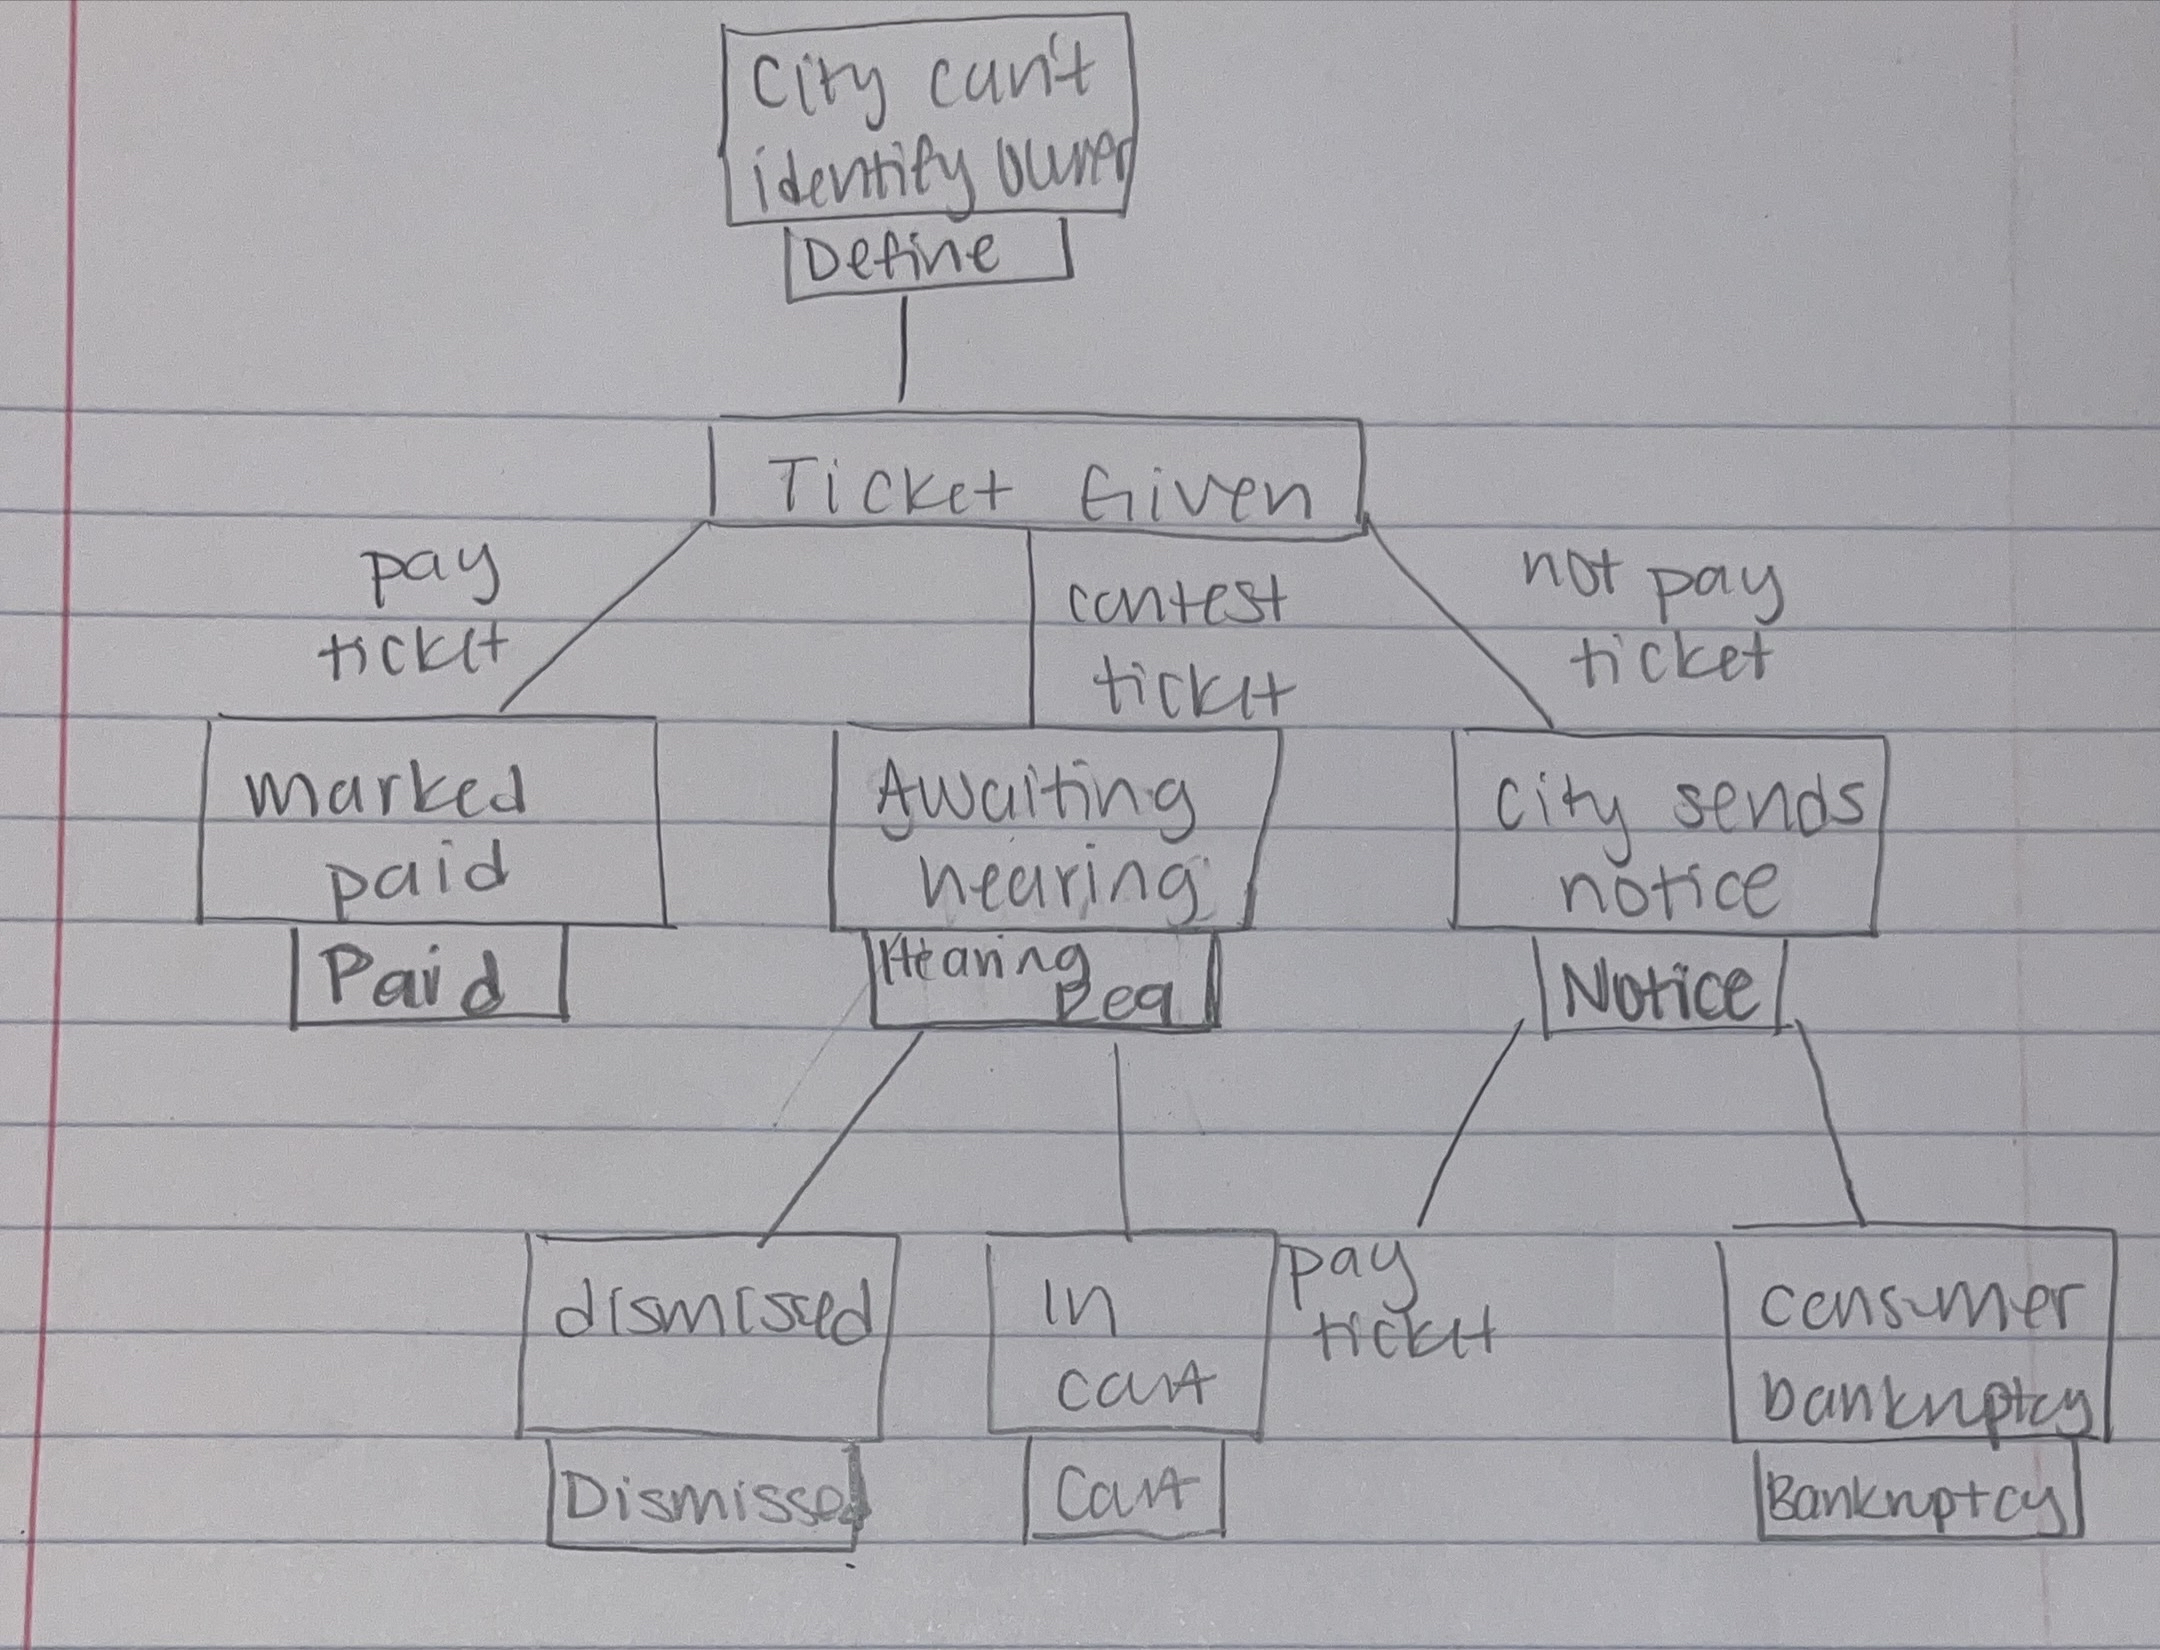 City can't
identify owner
Define
Ticket Given
pay
ticket
contest
ticket
not pay
ticket
marked
paid
Paid
Awaiting
hearing
Hearing
Req
city sends
notice
Notice
dismissed
Dismissed
In
court
Court
pay
ticket
consumer
bankruptcy
Bankruptcy